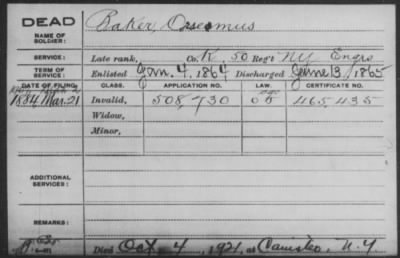 DEAD
NAME OF SOLDIER:
Baker,
SERVICE:
Late rank, Co. K, 50 Reg't NY Engrs
TERM OF SERVICE:
Enlisted Jan. 4, 1864 Discharged June 13, 1865
DATE OF FILING. CLASS. APPLICATION NO. LAW. CERTIFICATE NO.
1884, Mar. 21 Invalid, 508,730 465,435
Widow,
Minor,
ADDITIONAL SERVICES:
REMARKS:
Died Oct 4, 1921, at Canisteo, N.Y